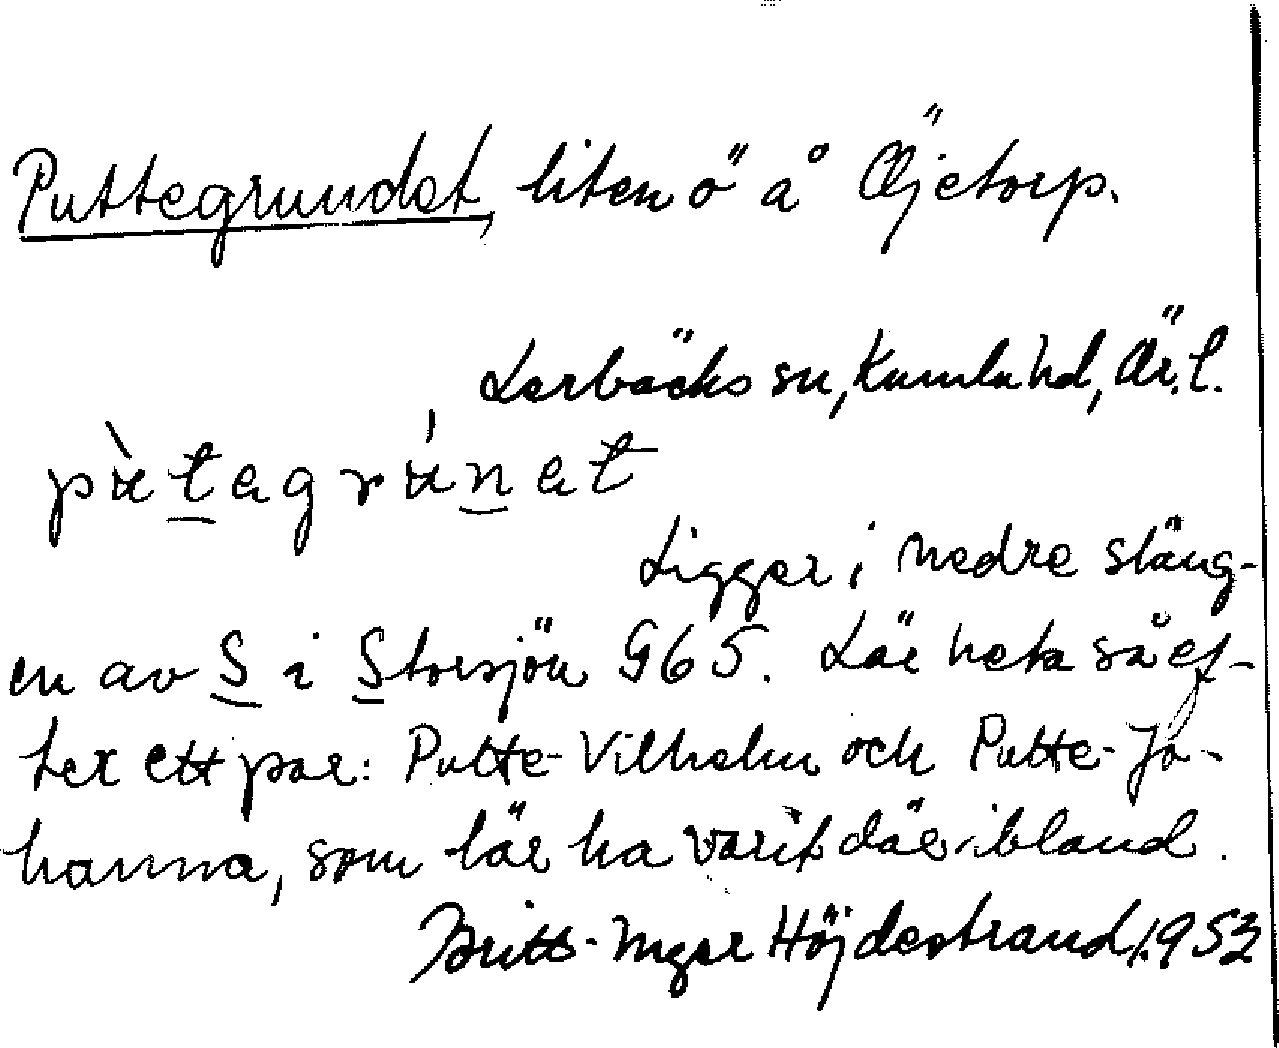 Puttegrundet, liten ö å Öjetorp.
Lerbäcks sn, Kumla hd, Ör. l.
pùtegrúnet
Ligger i nedre släng-
en av S i Storsjön G65. Lär heta så ef-
ter ett par: Putte-Vilhelm och Putte-Jo-
hanna, som lär ha varit där ibland.
Britt-Inger Höjdestrand, 1953